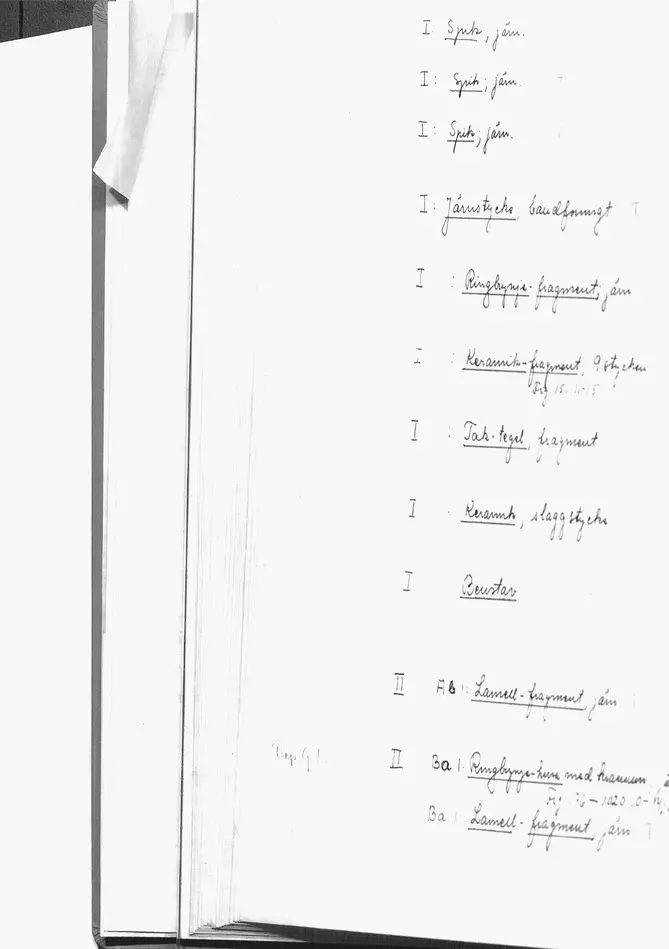 I: Spik, järn.
I: Spik; järn.
I: Spik; järn.
I: Järnstycke, bandformigt
I : Ringbrynje-fragment; järn
I : Keramik-fragment, 9 stycken
I : Tak-tegel, fragment
I : Keramik, slaggstycke
I Benstav
II Ab 1: Lamell-fragment, järn
II Ba 1: Ringbrynje-huva med
Ba : Lamell-fragment, järn